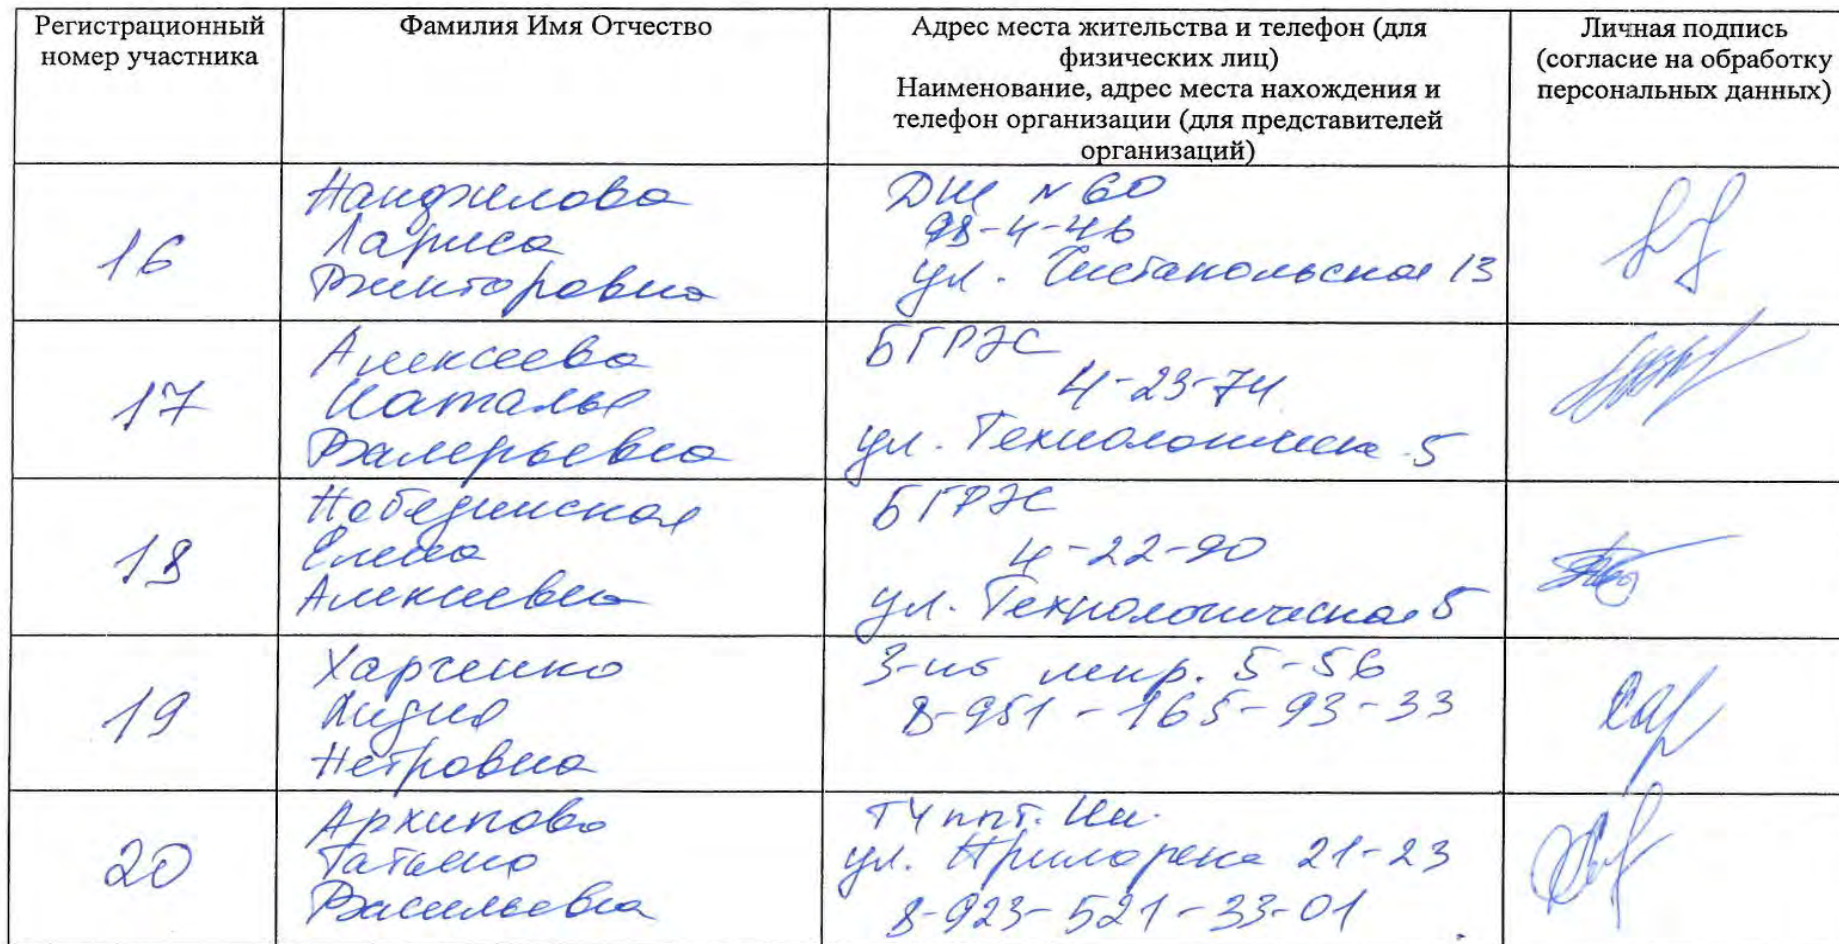 Регистрационный
номер участника
Фамилия Имя Отчество
Адрес места жительства и телефон (для
физических лиц)
Наименование, адрес места нахождения и
телефон организации (для представителей
организаций)
Личная подпись
(согласие на обработку
персональных данных)
16
Лариса
Викторовна
ДШ № 60
98-4-46
ул. 13
17
Алексеева
Наталья
Валерьевна
БГРЭС
4-23-74
ул. 5
18
Побединская
Елена
Алексеевна
БГРЭС
4-22-90
ул. Технологическая 5
19
Харченко
Лидия
Петровна
3-ий мкр. 5-56
8-951-165-93-33
20
Архипова
Татьяна
Васильевна
ул. 21-23
8-923-521-33-01